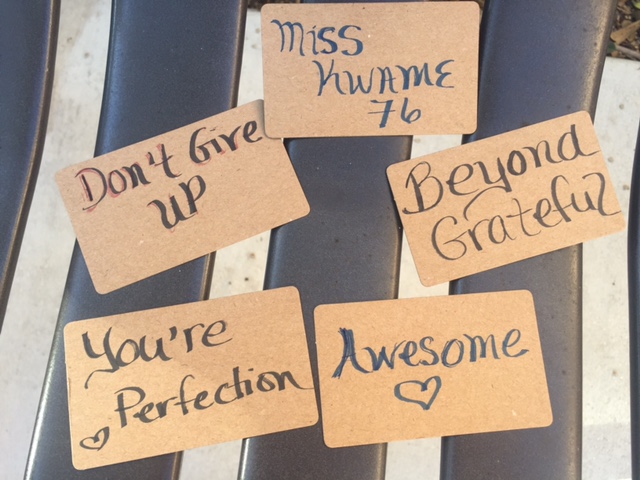 Miss
KWAME
76
Don't Give
UP
Beyond
Grateful
You're
Perfection
Awesome